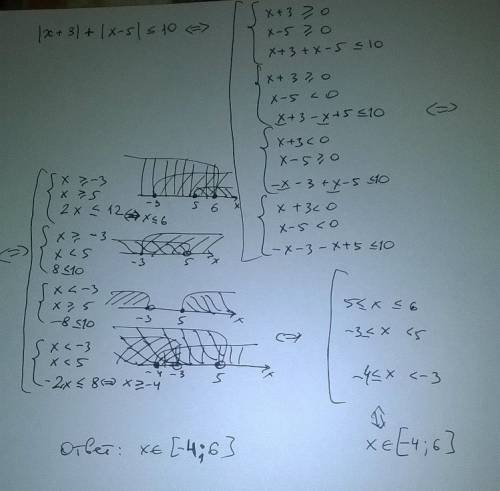 |x+3| + |x-5| ≤ 10 <=>
x+3 ≥ 0
x-5 ≥ 0
x+3+x-5 ≤ 10
x+3 ≥ 0
x-5 < 0
x+3-x+5 ≤ 10
<=>
x+3 < 0
x-5 ≥ 0
-x-3+x-5 ≤ 10
x+3 < 0
x-5 < 0
-x-3-x+5 ≤ 10
<=>
x ≥ -3
x ≥ 5
2x ≤ 12 <=> x ≤ 6
-3 5 6 x
x ≥ -3
x < 5
8 ≤ 10
-3 5 x
x < -3
x ≥ 5
-8 ≤ 10
-3 5 x
x < -3
x < 5
-2x ≤ 8 <=> x ≥ -4
-4 -3 5 x
<=>
5 ≤ x ≤ 6
-3 ≤ x < 5
-4 ≤ x < -3
x ∈ [-4; 6]
Ответ: x ∈ [-4; 6]